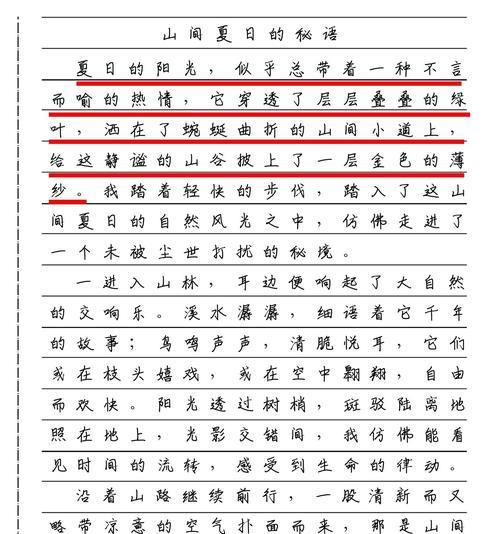 山间夏日的秘语
夏日的阳光，似乎总带着一种不言
而喻的热情，它穿透了层层叠叠的绿
叶，洒在了蜿蜒曲折的山间小道上，
给这静谧的山谷披上了一层金色的薄
纱。我踏着轻快的步伐，踏入了这山
间夏日的自然风光之中，仿佛走进了
一个未被尘世打扰的秘境。
一进入山林，耳边便响起了大自然
的交响乐。溪水潺潺，细语着它千年
的故事；鸟鸣声声，清脆悦耳，它们
或在枝头嬉戏，或在空中翱翔，自由
而欢快。阳光透过树梢，斑驳陆离地
照在地上，光影交错间，我仿佛能看
见时间的流转，感受到生命的律动。
沿着山路继续前行，一股清新而又
略带凉意的空气扑面而来，那是山间